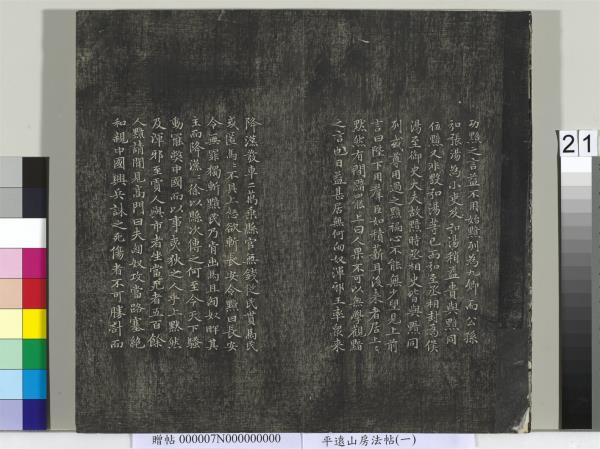 功黯之言益不用始黯列為九卿而公孫
弘張湯為小吏及弘湯稍益貴與黯同
位黯又非毀弘湯等已而弘至丞相封為侯
湯至御史大夫故黯時丞相史皆與黯同
列或尊用過之黯褊心不能無少望見上前
言曰陛下用群臣如積薪耳後來者居上上
默然有間黯罷上曰人果不可以無學觀黯
之言也日益甚居無何匈奴渾邪王率眾來
降漢發車二萬乘縣官無錢從民貰馬民
或匿馬馬不具上怒欲斬長安令黯曰長安
令無罪獨斬黯民乃肯出馬且匈奴畔其
主而降漢漢徐以縣次傳之何至令天下騷
動罷弊中國而以事夷狄之人乎上默然
及渾邪至賈人與市者坐當死者五百餘
人黯請間見高門曰夫匈奴攻當路塞絕
和親中國興兵誅之死傷者不可勝計而
21
贈帖 000007N000000000 平遠山房法帖(一)